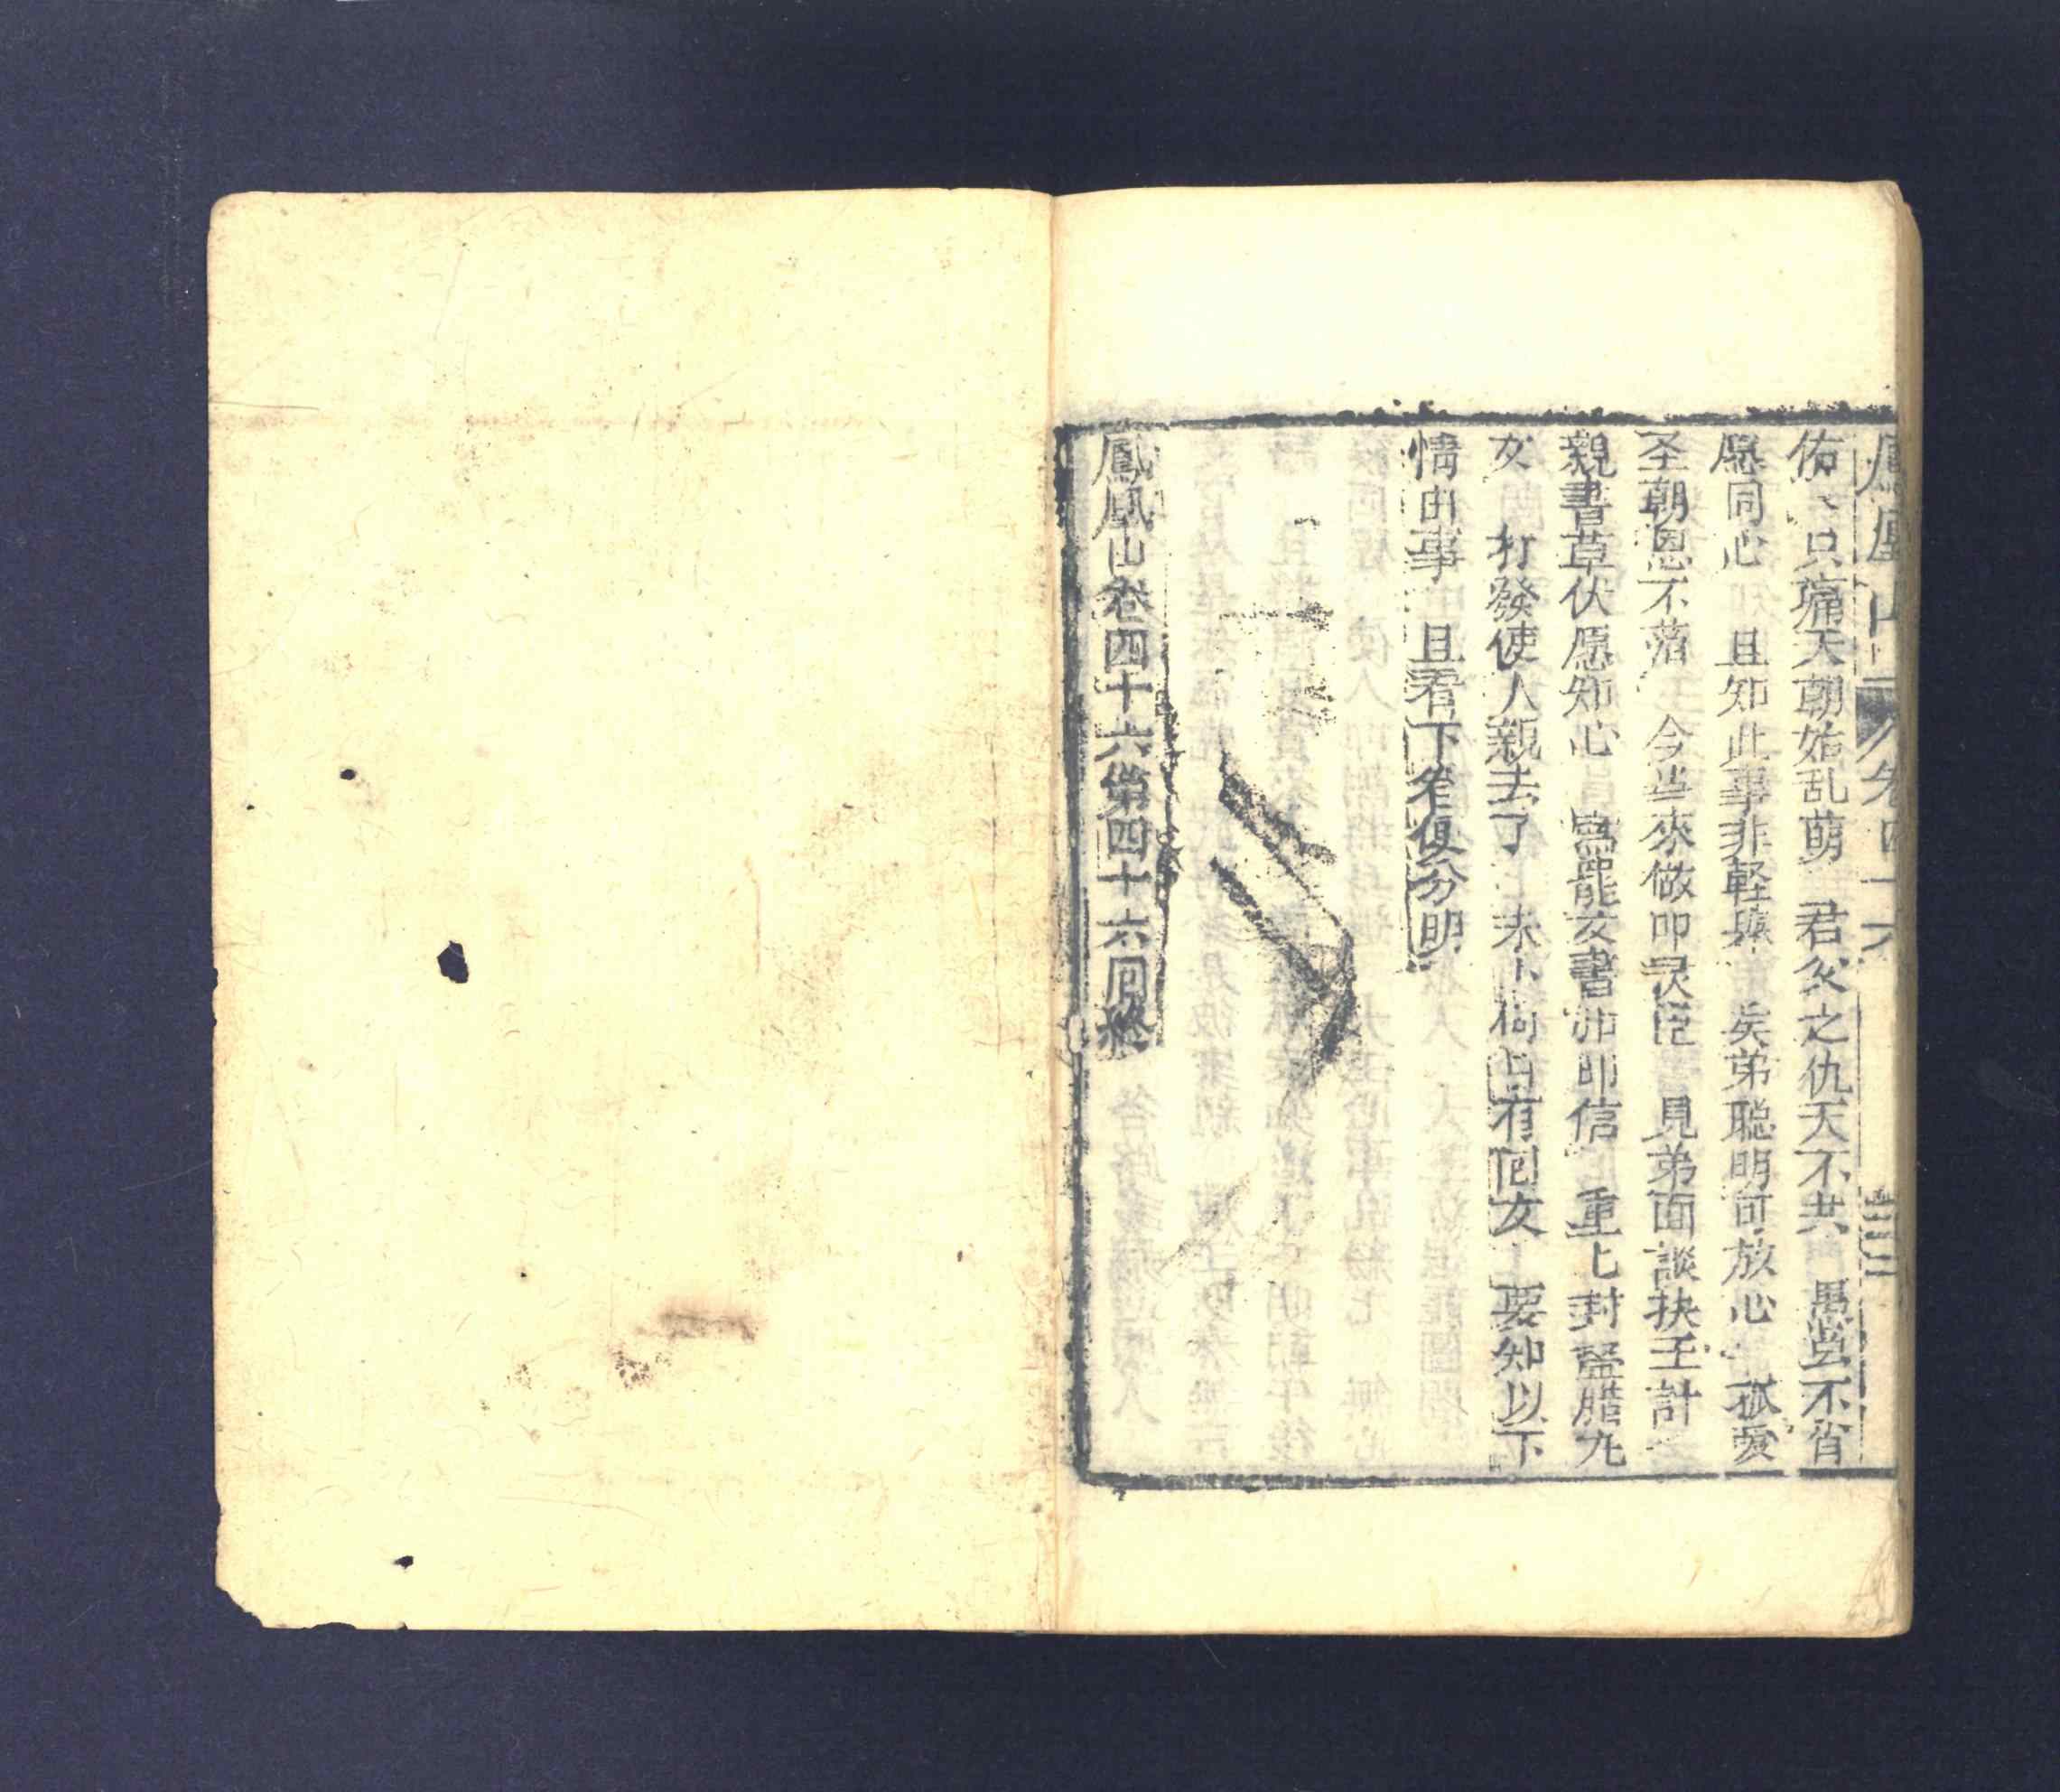 鳳凰山 卷四十六
佑〻只痛天朝始乱萌 君父之仇天不共 愚岂不省
愿同心 且知此事非軽 矣弟聪明可放心 孤爱
圣朝恩不落 今当來做叩灵臣 見弟面談抉王計
親書草伏愿知心 寫罷亥書冲卽信 重七封盝腊九
女 打發使人親去了 未卜何日有囘女 要知以下
情由事 且看下卷便分明
鳳凰山卷四十六第四十六囘終